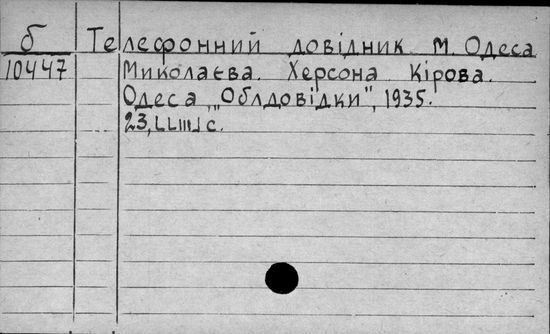 б Телефонний довідник м. Одеса
10447 Миколаєва. Херсона Кірова.
Одеса „Облдовідки", 1935.
23, с.